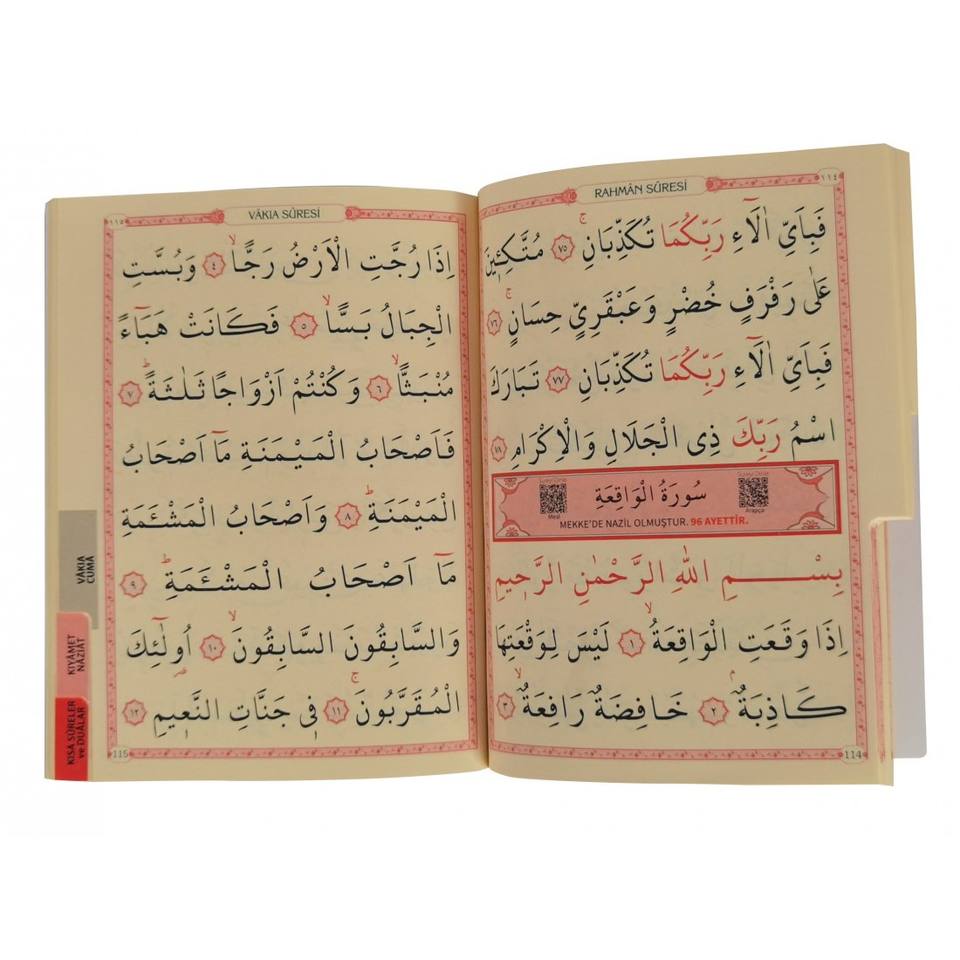 RAHMÂN SÛRESİ
١١٤
فَبِاَيِّ اٰلَٓاءِ رَبِّكُمَا تُكَذِّبَانِۚ ﴿٧٥﴾ مُتَّكِـ۪ٔينَ
عَلٰى رَفْرَفٍ خُضْرٍ وَعَبْقَرِيٍّ حِسَانٍۚ ﴿٧٦﴾
فَبِاَيِّ اٰلَٓاءِ رَبِّكُمَا تُكَذِّبَانِ ﴿٧٧﴾ تَبَارَكَ
اسْمُ رَبِّكَ ذِي الْجَلَالِ وَالْاِكْرَامِ ﴿٧٨﴾
سُورَةُ الْوَاقِعَةِ
Meal
Arapça
MEKKE'DE NAZİL OLMUŞTUR. 96 AYETTİR.
بِسْــــــمِ اللّٰهِ الرَّحْمٰنِ الرَّح۪يمِ
اِذَا وَقَعَتِ الْوَاقِعَةُۙ ﴿١﴾ لَيْسَ لِوَقْعَتِهَا
كَاذِبَةٌۢ ﴿٢﴾ خَافِضَةٌ رَافِعَةٌۙ ﴿٣﴾
114
VÂKIA SÛRESİ
١١٥
اِذَا رُجَّتِ الْاَرْضُ رَجًّاۙ ﴿٤﴾ وَبُسَّتِ
الْجِبَالُ بَسًّاۙ ﴿٥﴾ فَكَانَتْ هَبَٓاءً
مُنْبَثًّاۙ ﴿٦﴾ وَكُنْتُمْ اَزْوَاجًا ثَلٰثَةًۜ ﴿٧﴾
فَاَصْحَابُ الْمَيْمَنَةِ مَٓا اَصْحَابُ
الْمَيْمَنَةِۜ ﴿٨﴾ وَاَصْحَابُ الْمَشْـَٔمَةِ
مَٓا اَصْحَابُ الْمَشْـَٔمَةِۜ ﴿٩﴾
وَالسَّابِقُونَ السَّابِقُونَۙ ﴿١٠﴾ اُو۬لٰٓئِكَ
الْمُقَرَّبُونَۚ ﴿١١﴾ ف۪ي جَنَّاتِ النَّع۪يمِ ﴿١٢﴾
115
VÂKIA
CUMÂ
KIYÂMET
NÂZİÂT
KISA SÛRELER
ve DUÂLAR